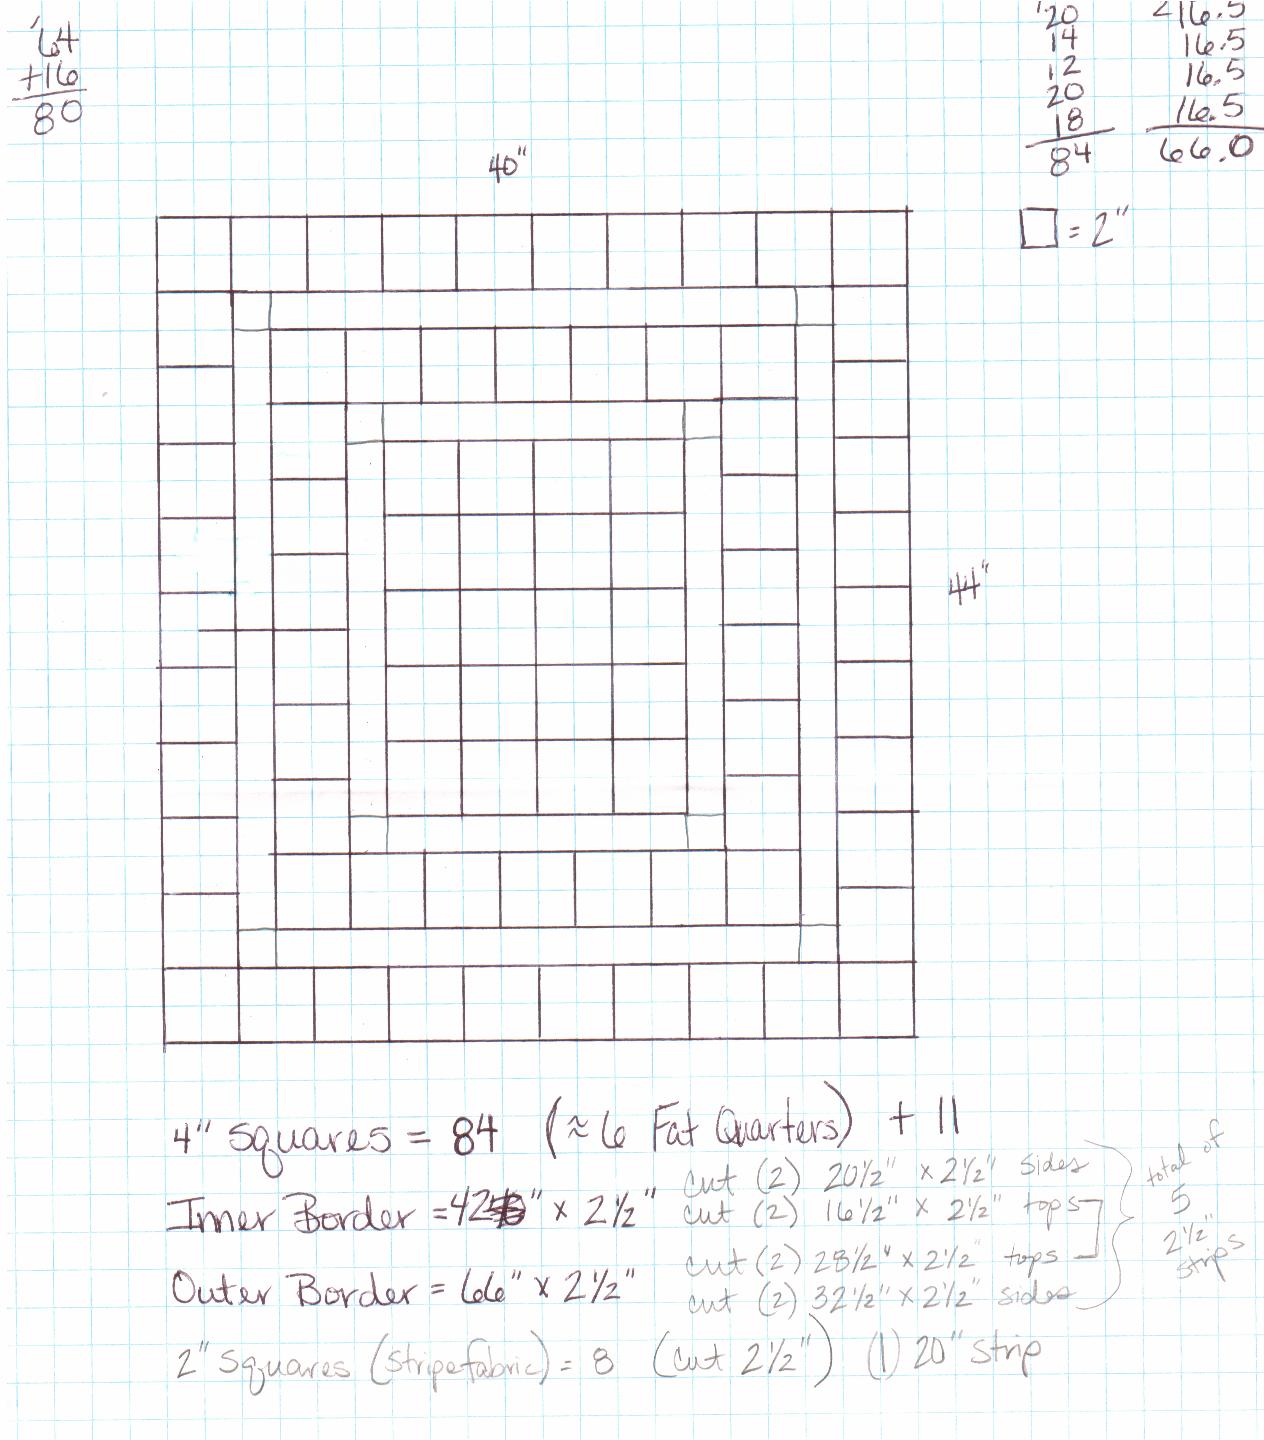 64
+16
80
20
14
12
20
18
84
16.5
16.5
16.5
16.5
66.0
40"
= 2"
44"
4" squares = 84 (≈ 6 Fat Quarters) + 11
Inner Border = 42" x 2½"
Outer Border = 66" x 2½"
cut (2) 20½" x 2½" sides
cut (2) 16½" x 2½" tops
cut (2) 28½" x 2½" tops
cut (2) 32½" x 2½" sides
total of
5
2½"
strips
2" squares (stripe fabric) = 8 (cut 2½") (1) 20" strip